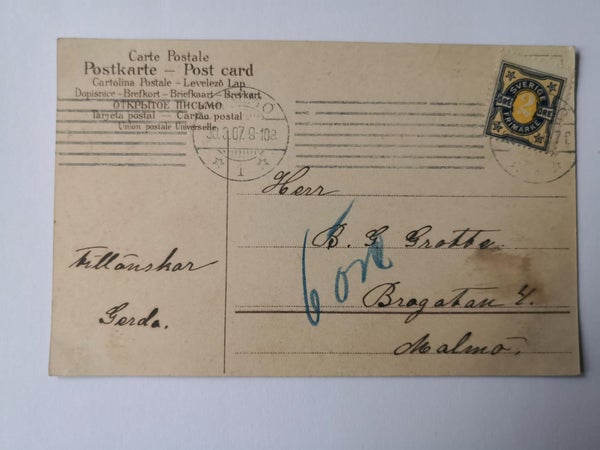 Carte Postale
Postkarte – Post card
Cartolina Postale – Levelező Lap
Dopisnice – Brefkort – Briefkaart – Brevkort
ОТКРЫТОЕ ПИСЬМО
Tarjeta postal – Cartão postal
Union postale Universelle
07. 9-10
1
SVERIGE
2
FRIMÄRKE
Herr
B. G. Grothe
Bragatan 4.
Malmö.
6 öre
Tillönskar
Gerda.